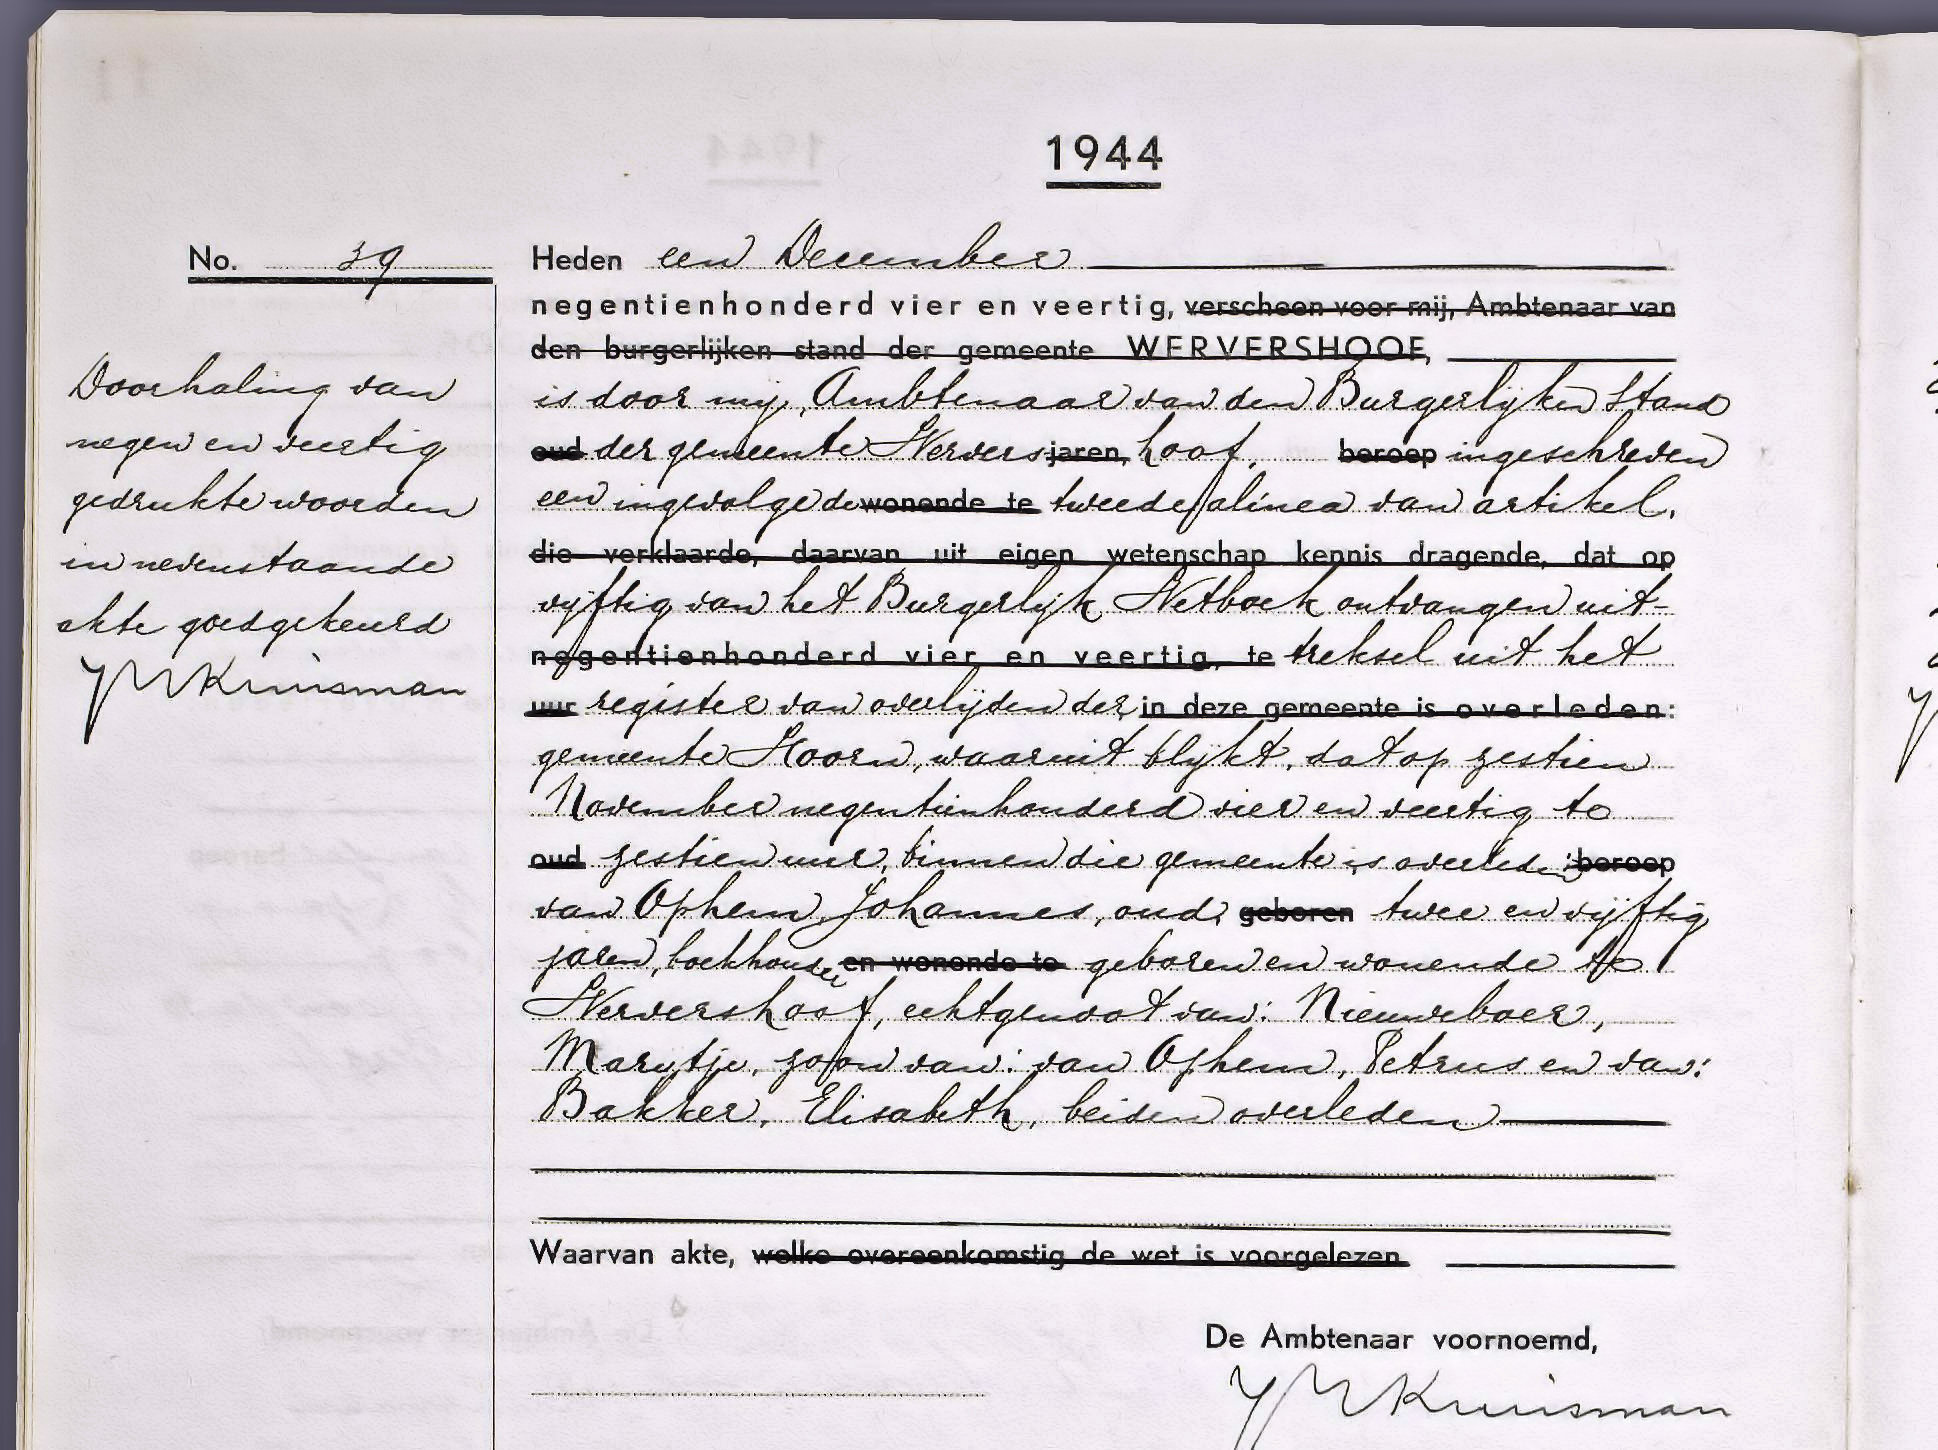 1944
No. 39
Heden een December
negentienhonderd vier en veertig, verscheen voor mij, Ambtenaar van
den burgerlijken stand der gemeente WERVERSHOOF,
is door mij, Ambtenaar van den Burgerlijken Stand
oud der gemeente Wervers jaren, hoof, beroep ingeschreven
een ingevolge de wonende te tweede alinea van artikel
die verklaarde, daarvan uit eigen wetenschap kennis dragende, dat op
vijftig van het Burgerlijk Wetboek ontvangen uit-
negentienhonderd vier en veertig, te treksel uit het
uur register van overlijden der in deze gemeente is overleden:
gemeente Hoorn, waaruit blijkt, dat op zestien
November negentienhonderd vier en veertig te
oud zestien uur, binnen die gemeente is overleden: beroep
van Ophem, Johannes, oud, geboren twee en vijftig
jaren, boekhouder en wonende te geboren en wonende te
Wervershoof, echtgenoot van: Nieuweboer,
Marijtje, zoon van: van Ophem, Petrus en van:
Bakker, Elisabeth, beiden overleden
Waarvan akte, welke overeenkomstig de wet is voorgelezen
De Ambtenaar voornoemd,
Kruisman
Doorhaling van
negen en veertig
gedrukte woorden
in nevenstaande
akte goedgekeurd
Kruisman